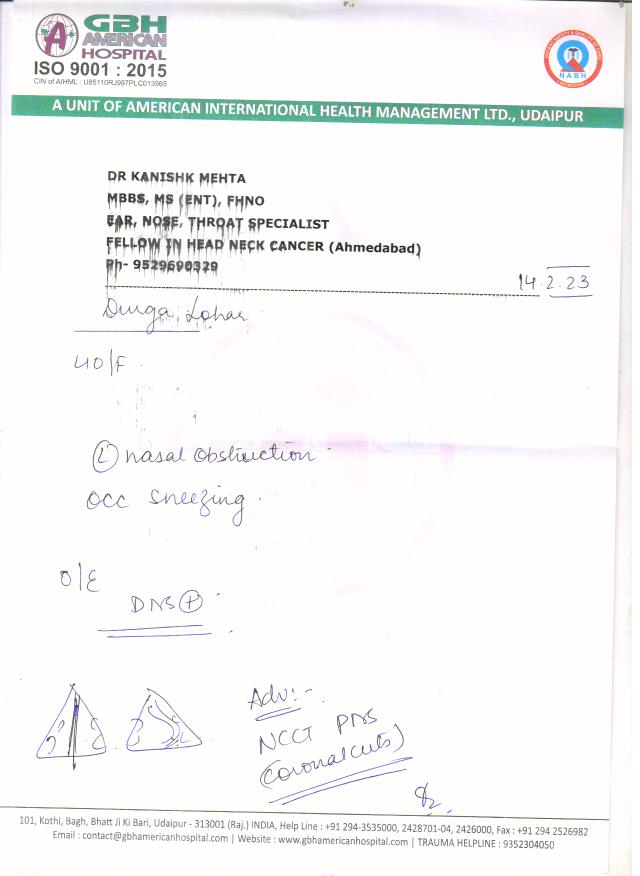 GBH
AMERICAN
HOSPITAL
ISO 9001 : 2015
CIN of AIHML : U85110RJ997PLC013965
NABH
A UNIT OF AMERICAN INTERNATIONAL HEALTH MANAGEMENT LTD., UDAIPUR
DR KANISHK MEHTA
MBBS, MS (ENT), FHNO
EAR, NOSE, THROAT SPECIALIST
FELLOW IN HEAD NECK CANCER (Ahmedabad)
Ph- 9529690329
14.2.23
Durga Lohar
40/F
(L) nasal obstruction
occ sneezing
O/E
DNS (+)
Adv:-
NCCT PNS
(coronal cuts)
101, Kothi, Bagh, Bhatt Ji Ki Bari, Udaipur - 313001 (Raj.) INDIA, Help Line : +91 294-3535000, 2428701-04, 2426000, Fax : +91 294 2526982
Email : contact@gbhamericanhospital.com | Website : www.gbhamericanhospital.com | TRAUMA HELPLINE : 9352304050